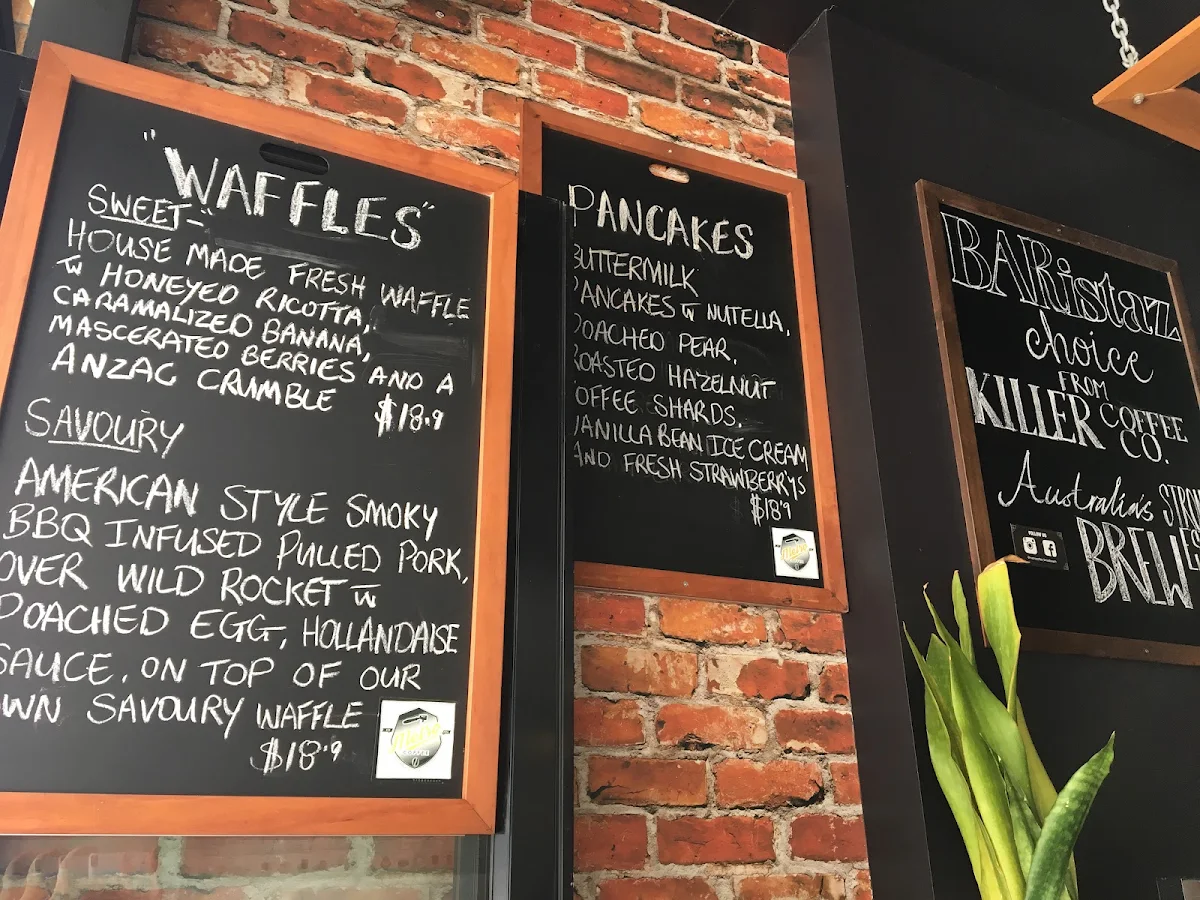 "WAFFLES"
SWEET-
HOUSE MADE FRESH WAFFLE
w HONEYED RICOTTA,
CARAMALIZED BANANA,
MASCERATED BERRIES AND A
ANZAC CRUMBLE $18.9
SAVOURY
AMERICAN STYLE SMOKY
BBQ INFUSED PULLED PORK,
OVER WILD ROCKET w
POACHED EGG, HOLLANDAISE
SAUCE. ON TOP OF OUR
OWN SAVOURY WAFFLE
$18.9
PANCAKES
BUTTERMILK
PANCAKES w NUTELLA,
POACHED PEAR,
ROASTED HAZELNUT
COFFEE SHARDS.
VANILLA BEAN ICE CREAM
AND FRESH STRAWBERRYS
$18.9
BARistaz
choice
FROM
KILLER COFFEE
CO.
Australia's
BREW
FOLLOW US